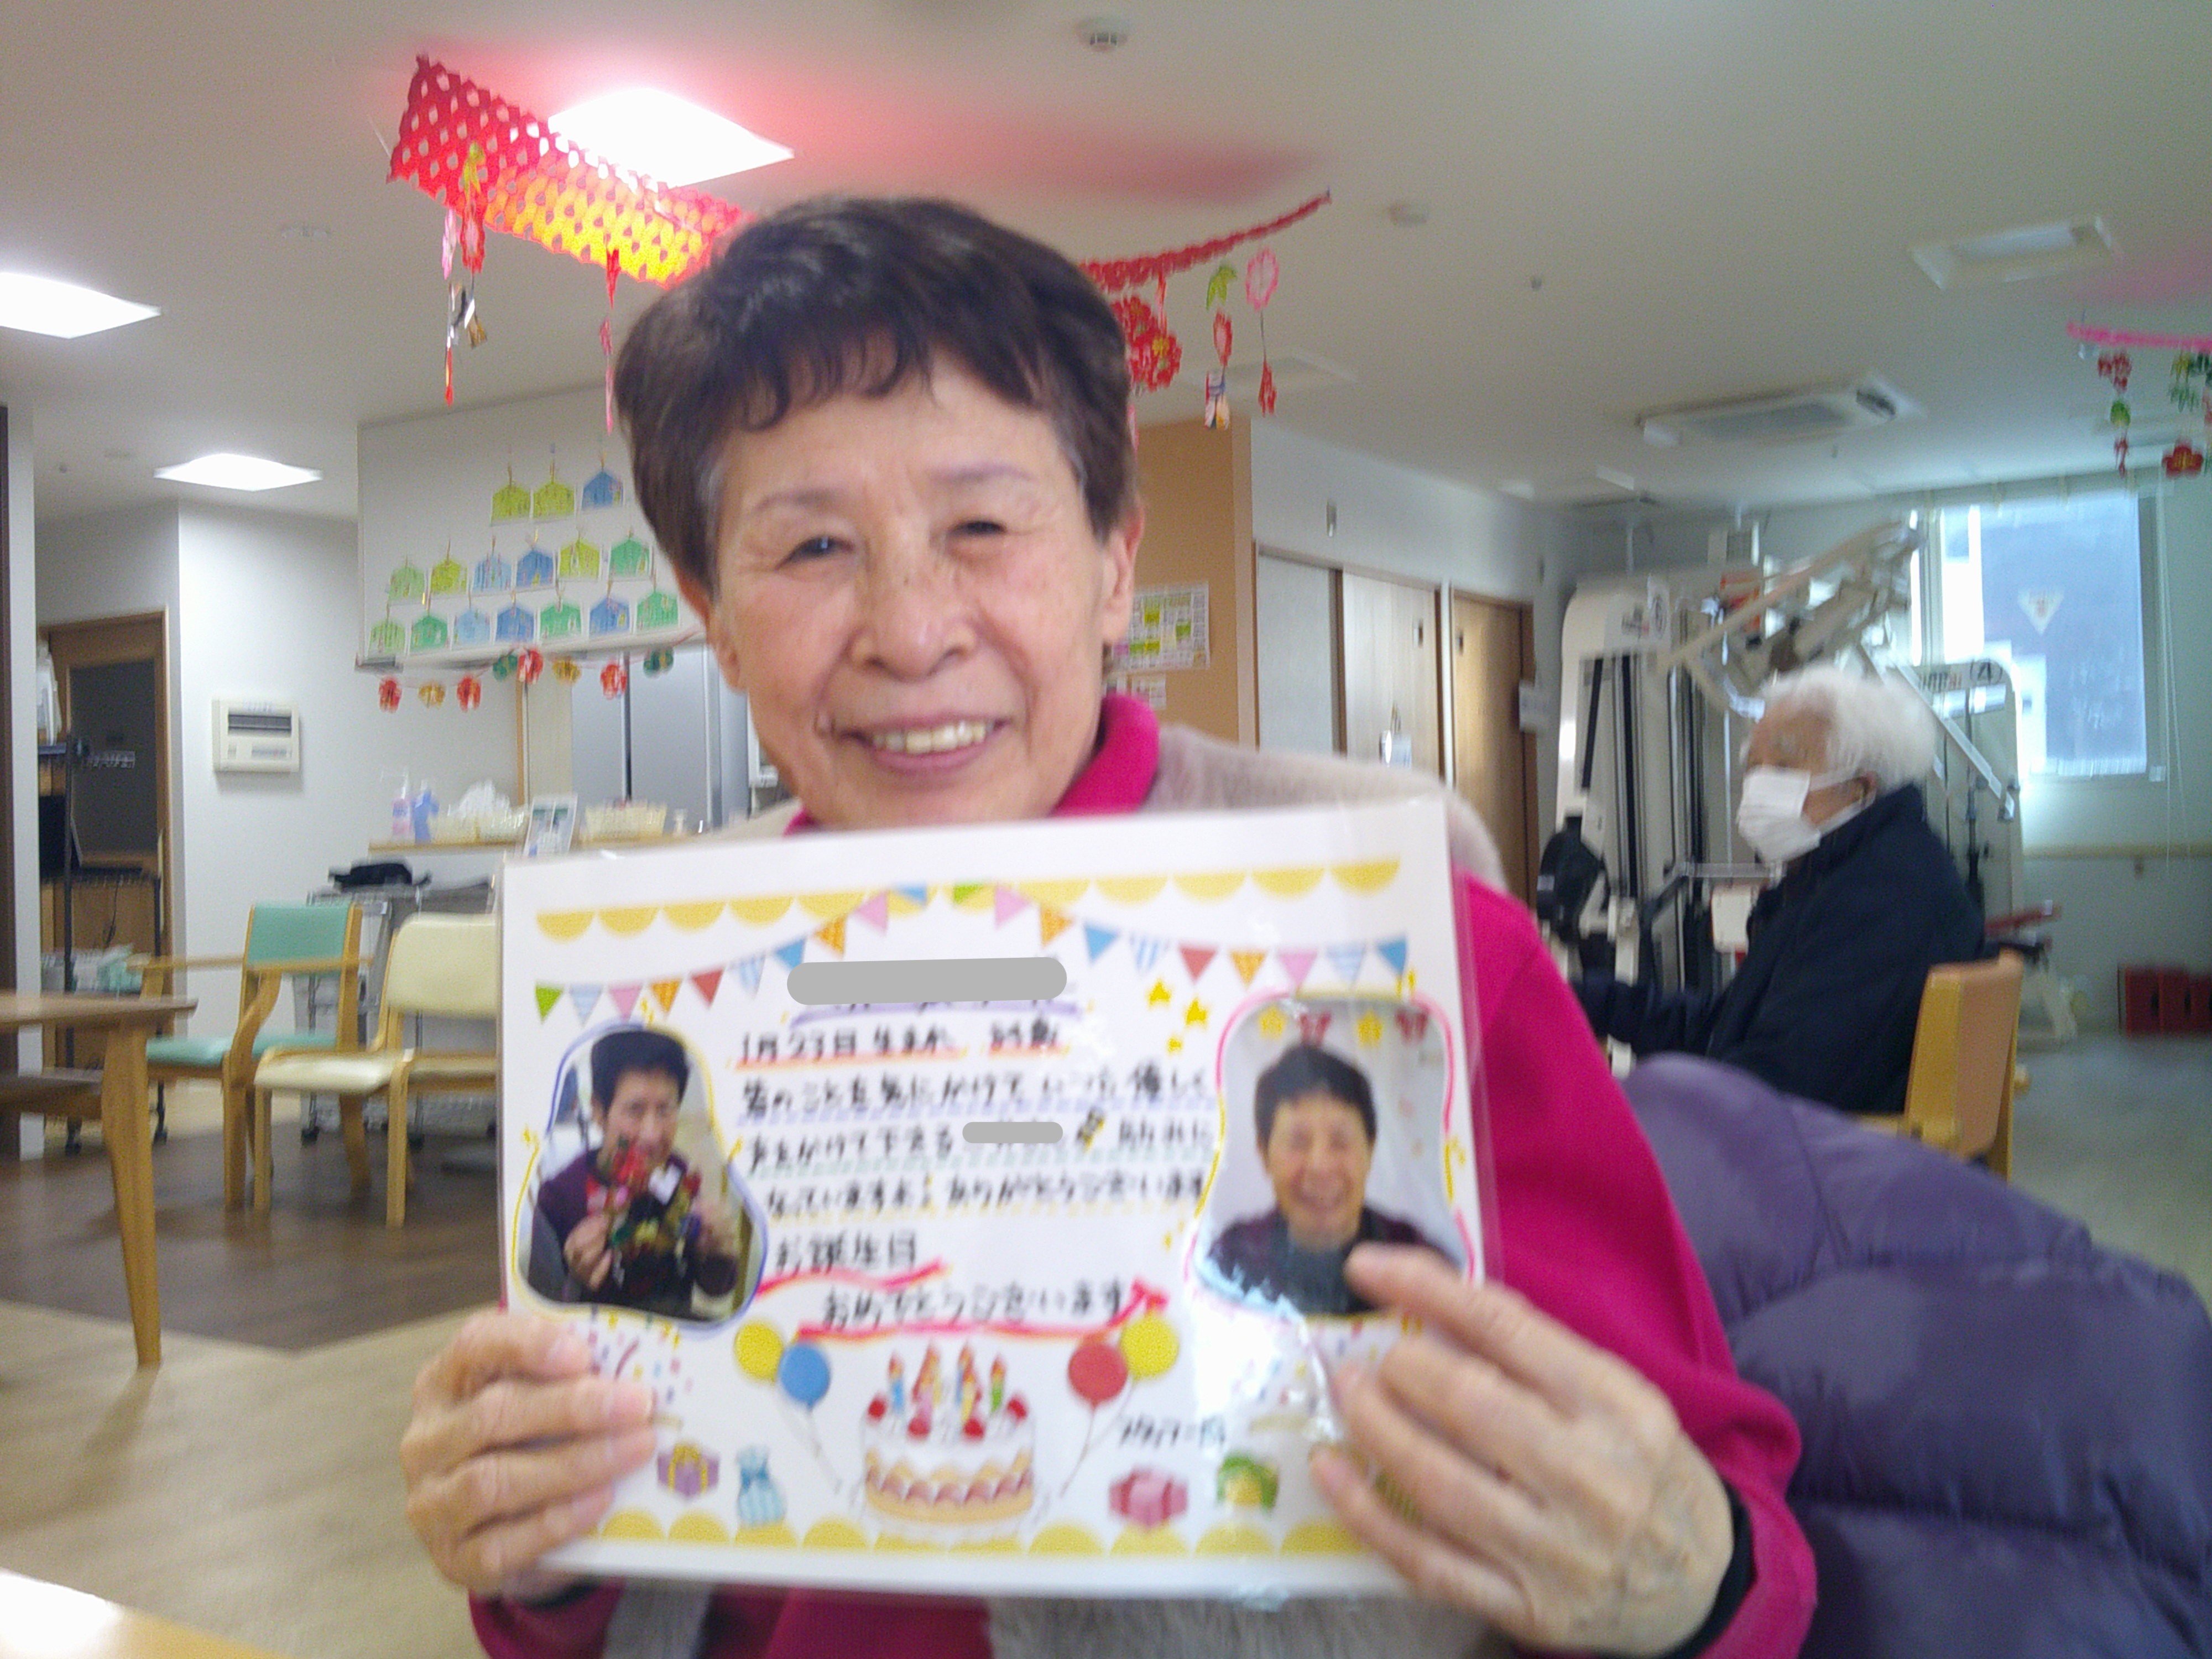 1月23日生まれ
皆のことを気にかけて いつも優しく
声をかけて下さる 助けに
なっていますよ! ありがとうございます
お誕生日
おめでとうございます
スタッフ一同